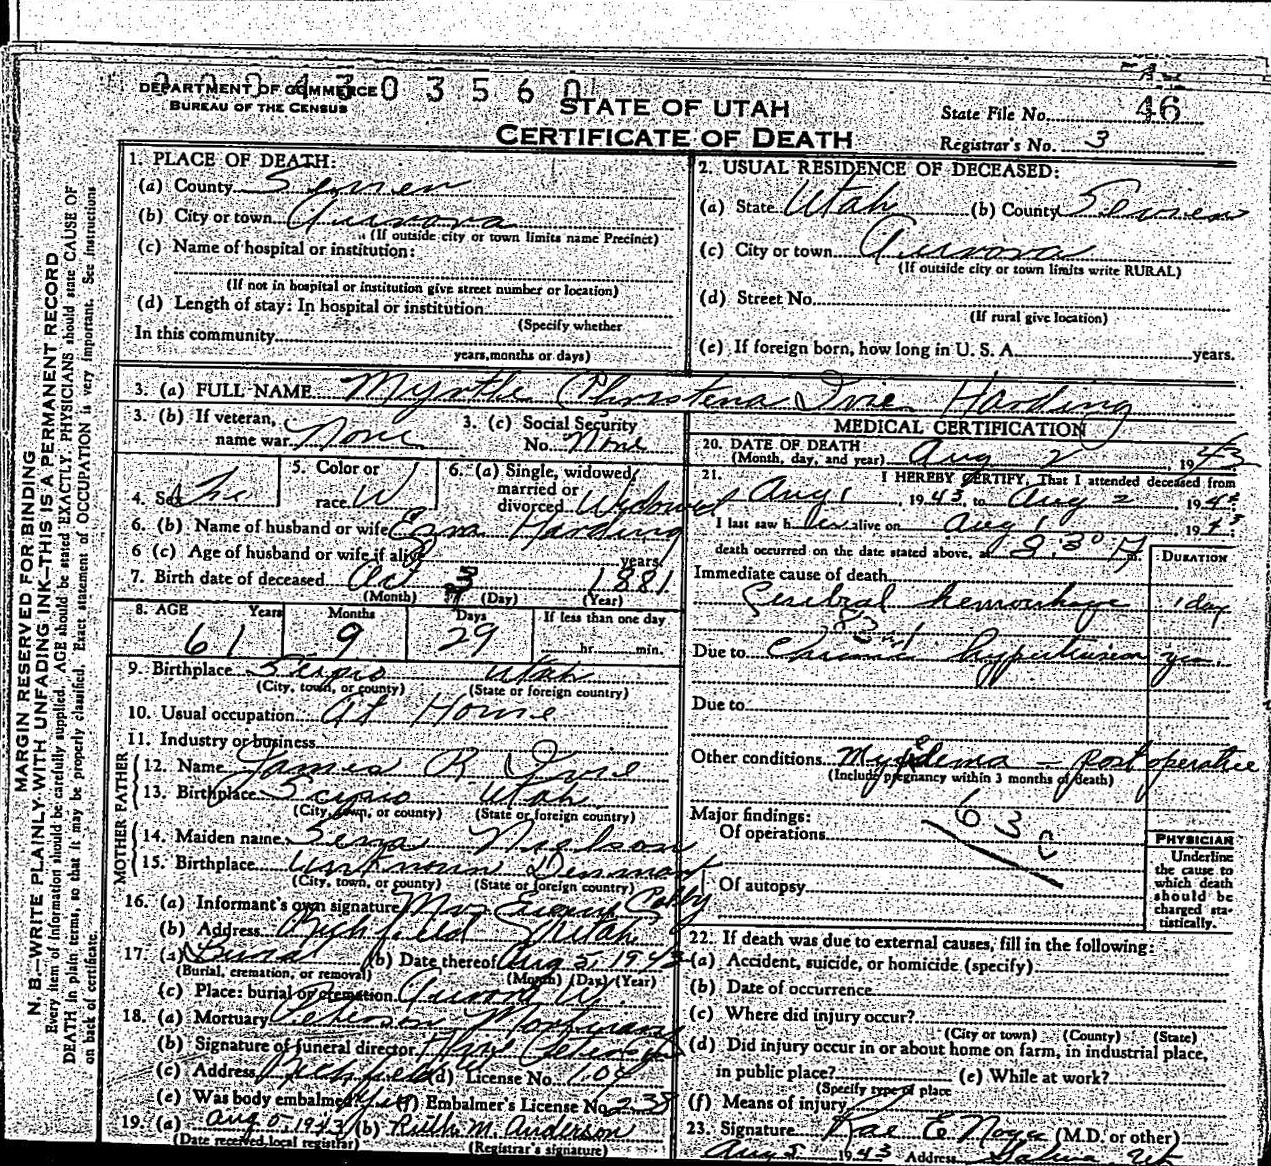 2024303560
DEPARTMENT OF COMMERCE
BUREAU OF THE CENSUS
STATE OF UTAH
CERTIFICATE OF DEATH
State File No. 46
Registrar's No. 3
MARGIN RESERVED FOR BINDING
N. B.—WRITE PLAINLY WITH UNFADING INK—THIS IS A PERMANENT RECORD
Every item of information should be carefully supplied. AGE should be stated EXACTLY. PHYSICIANS should state CAUSE OF
DEATH in plain terms, so that it may be properly classified. Exact statement of OCCUPATION is very important. See instructions
on back of certificate.
1. PLACE OF DEATH:
(a) County Sevier
(b) City or town Aurora
(If outside city or town limits name Precinct)
(c) Name of hospital or institution:
(If not in hospital or institution give street number or location)
(d) Length of stay: In hospital or institution
(Specify whether
In this community
years, months or days)
2. USUAL RESIDENCE OF DECEASED:
(a) State Utah (b) County Sevier
(c) City or town Aurora
(If outside city or town limits write RURAL)
(d) Street No.
(If rural give location)
(e) If foreign born, how long in U. S. A. years.
3. (a) FULL NAME Myrtle Christena Ivie Harding
3. (b) If veteran, name war None
3. (c) Social Security No. None
4. Sex Fe
5. Color or race W
6. (a) Single, widowed, married or divorced Widowed
6. (b) Name of husband or wife Ezra Harding
6 (c) Age of husband or wife if alive years.
7. Birth date of deceased Oct 3 1881
(Month) (Day) (Year)
8. AGE Years Months Days If less than one day
61 9 29 hr. min.
9. Birthplace Scipio Utah
(City, town, or county) (State or foreign country)
10. Usual occupation At Home
11. Industry or business
FATHER
12. Name James R Ivie
13. Birthplace Scipio Utah
(City, town, or county) (State or foreign country)
MOTHER
14. Maiden name Nielson
15. Birthplace unknown Denmark
(City, town, or county) (State or foreign country)
16. (a) Informant's own signature Mrs. Colby
(b) Address Richfield Utah
17. (a) Burial (b) Date thereof Aug 5, 1943
(Burial, cremation, or removal) (Month) (Day) (Year)
(c) Place: burial or cremation Aurora, U.
18. (a) Mortuary Peterson Mortuary
(b) Signature of funeral director
(c) Address Richfield (d) License No. 109
(e) Was body embalmed Yes (f) Embalmer's License No. 238
19. (a) Aug 5, 1943 (b) Ruth M. Anderson
(Date received local registrar) (Registrar's signature)
MEDICAL CERTIFICATION
20. DATE OF DEATH
(Month, day, and year) Aug 2, 1943
21. I HEREBY CERTIFY, That I attended deceased from
Aug 1, 1943, to Aug 2, 1943
I last saw her alive on Aug 1 1943
death occurred on the date stated above, at m.
DURATION
Immediate cause of death
Cerebral hemorrhage 1 day
Due to Chronic hypertension yrs.
Due to
Other conditions Myxedema - post operative
(Include pregnancy within 3 months of death)
Major findings: 63c
Of operations
Of autopsy
PHYSICIAN
Underline
the cause to
which death
should be
charged sta-
tistically.
22. If death was due to external causes, fill in the following:
(a) Accident, suicide, or homicide (specify)
(b) Date of occurrence
(c) Where did injury occur?
(City or town) (County) (State)
(d) Did injury occur in or about home on farm, in industrial place,
in public place? (e) While at work?
(Specify type of place
(f) Means of injury
23. Signature Rae E Noyes (M.D. or other)
Aug 5 1943 Address Salina Ut